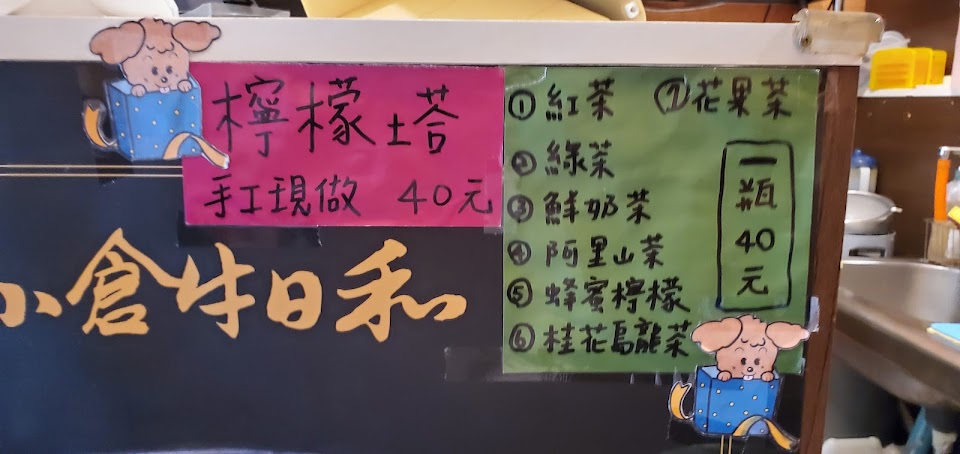 檸檬塔
手工現做 40元
小倉牛日和
①紅茶 ⑦花果茶
②綠茶
③鮮奶茶
④阿里山茶
⑤蜂蜜檸檬
⑥桂花烏龍茶
一瓶40元